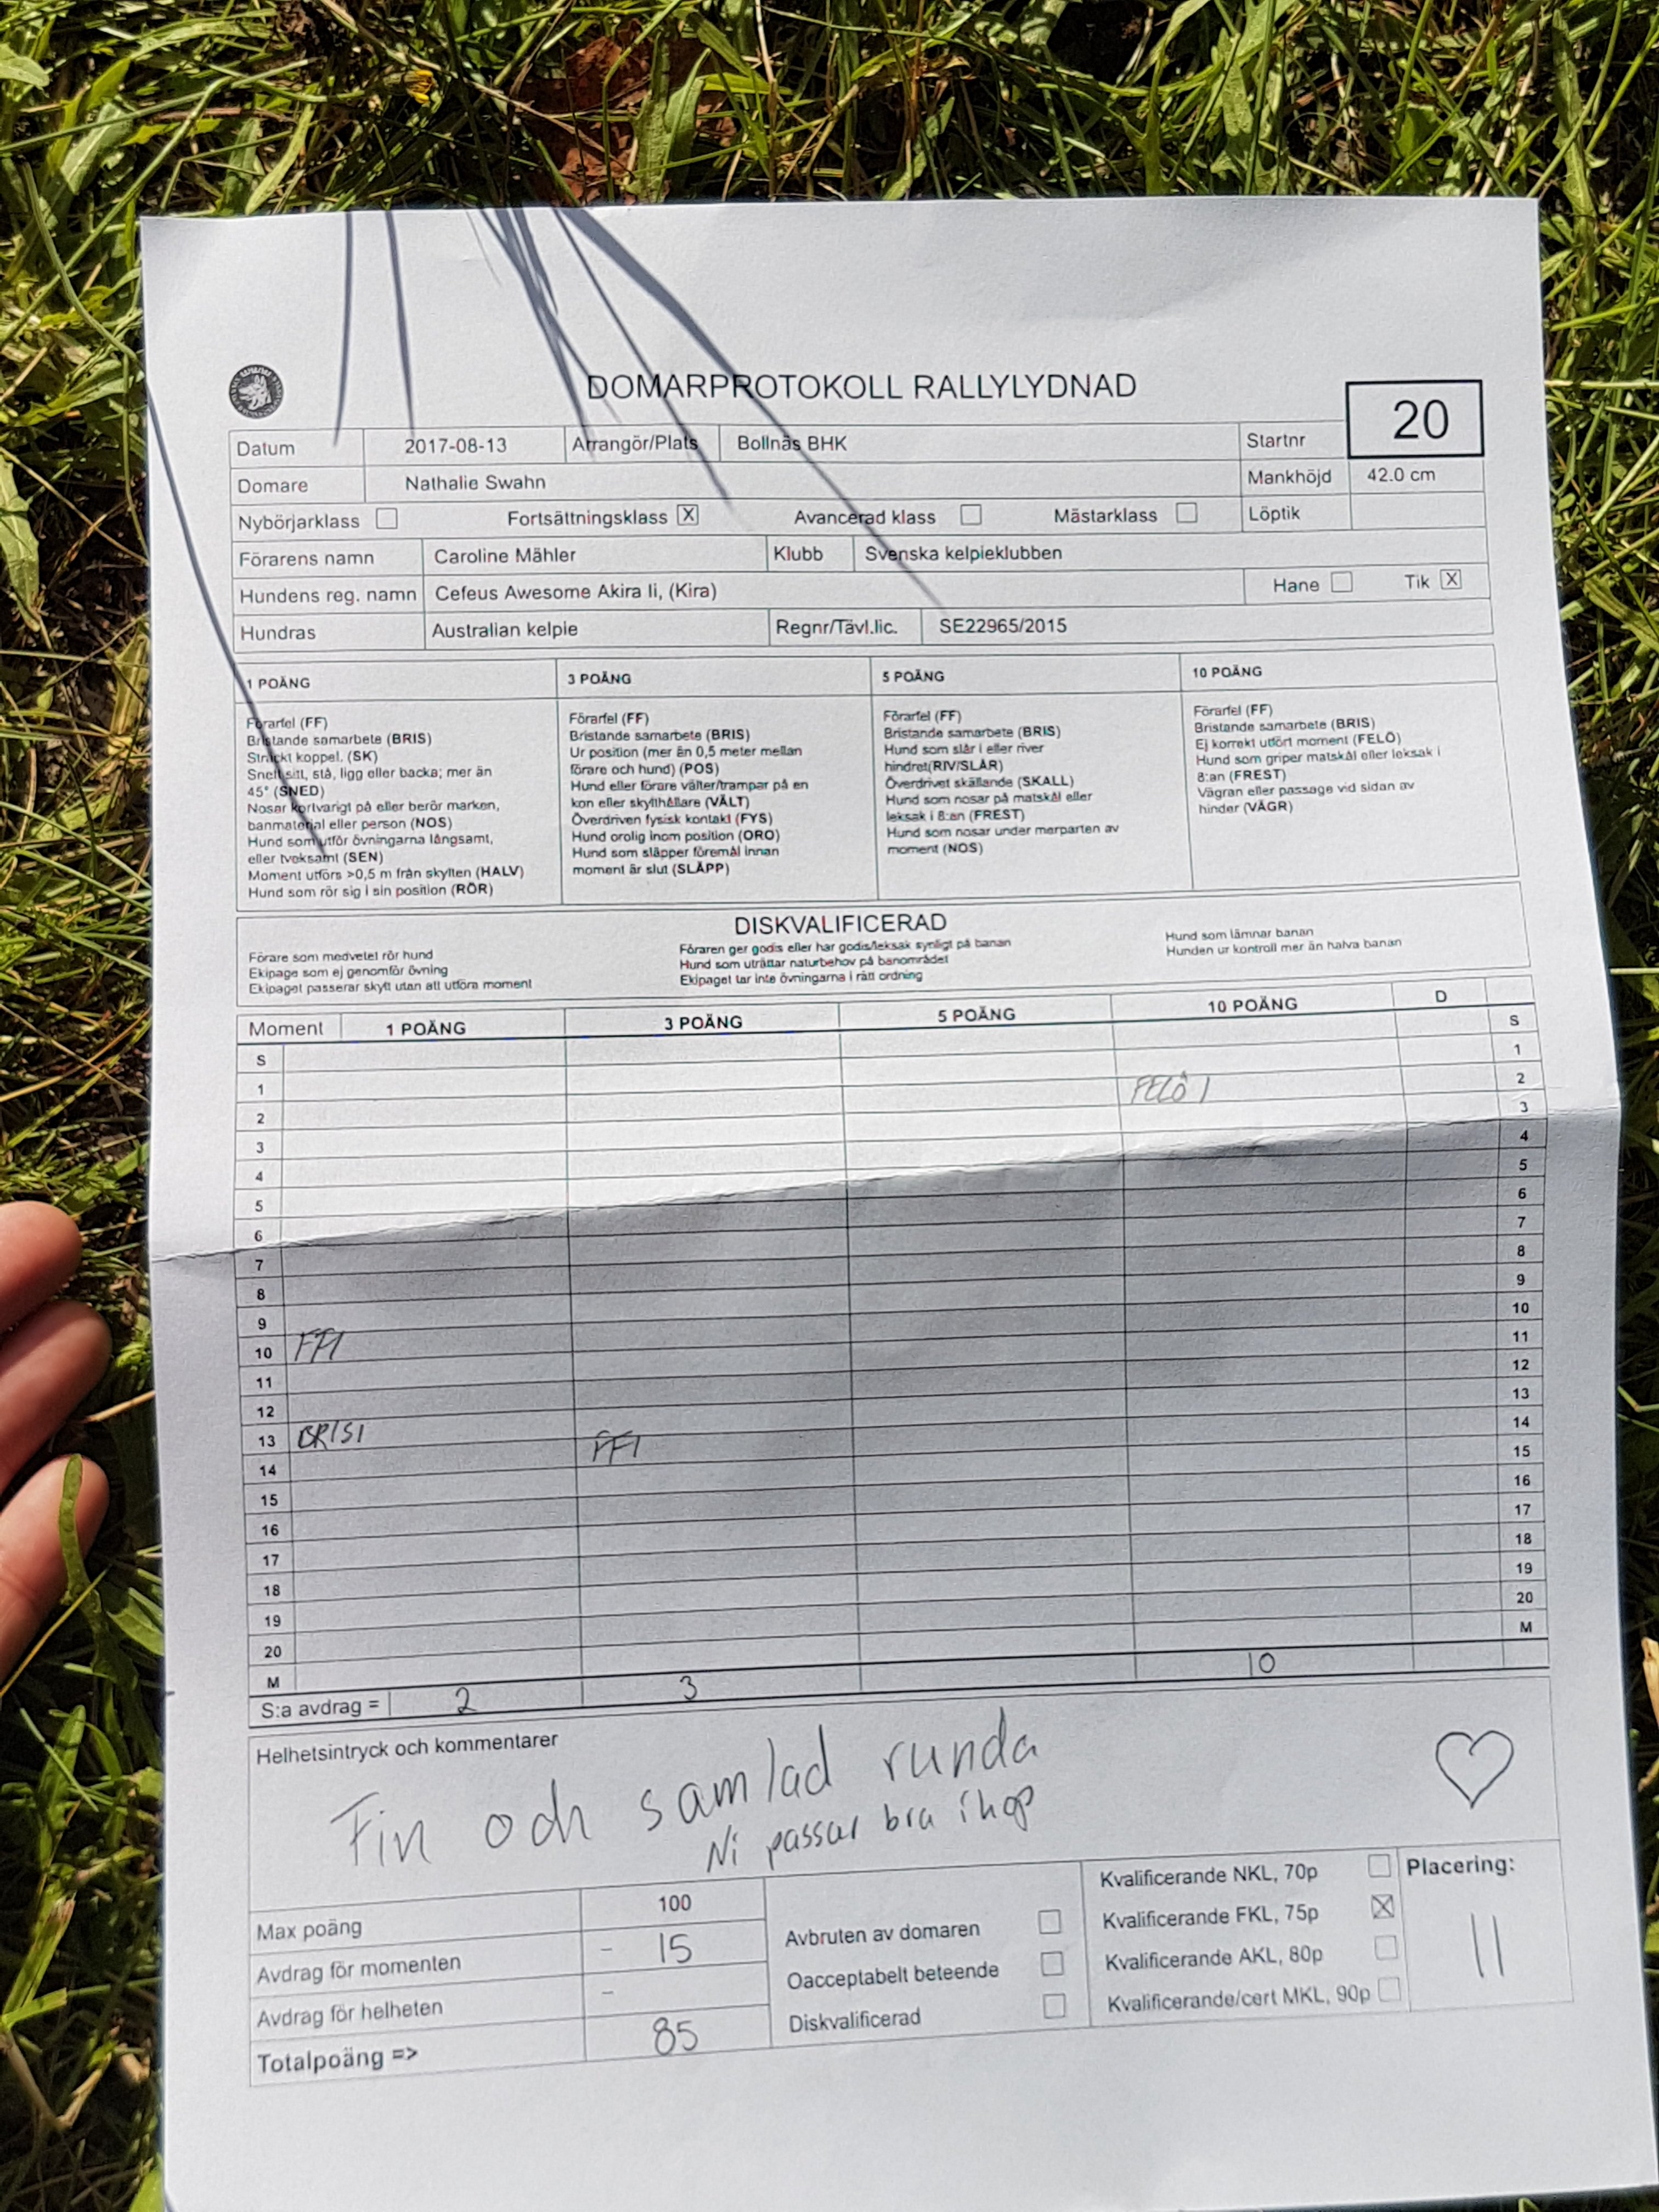 DOMARPROTOKOLL RALLYLYDNAD
20
Datum 2017-08-13 Arrangör/Plats Bollnäs BHK Startnr
Domare Nathalie Swahn Mankhöjd 42.0 cm
Nybörjarklass Fortsättningsklass X Avancerad klass Mästarklass Löptik
Förarens namn Caroline Mähler Klubb Svenska kelpieklubben
Hundens reg. namn Cefeus Awesome Akira Ii, (Kira) Hane Tik X
Hundras Australian kelpie Regnr/Tävl.lic. SE22965/2015
1 POÄNG
Förarfel (FF)
Bristande samarbete (BRIS)
Sträckt koppel. (SK)
Snett sitt, stå, ligg eller backa; mer än
45° (SNED)
Nosar kortvarigt på eller berör marken,
banmaterial eller person (NOS)
Hund som utför övningarna långsamt,
eller tveksamt (SEN)
Moment utförs >0,5 m från skylten (HALV)
Hund som rör sig i sin position (RÖR)
3 POÄNG
Förarfel (FF)
Bristande samarbete (BRIS)
Ur position (mer än 0,5 meter mellan
förare och hund) (POS)
Hund eller förare välter/trampar på en
kon eller skylthållare (VÄLT)
Överdriven fysisk kontakt (FYS)
Hund orolig inom position (ORO)
Hund som släpper föremål innan
moment är slut (SLÄPP)
5 POÄNG
Förarfel (FF)
Bristande samarbete (BRIS)
Hund som slår i eller river
hindret(RIV/SLÅR)
Överdrivet skällande (SKALL)
Hund som nosar på matskål eller
leksak i 8:an (FREST)
Hund som nosar under merparten av
moment (NOS)
10 POÄNG
Förarfel (FF)
Bristande samarbete (BRIS)
Ej korrekt utfört moment (FELÖ)
Hund som griper matskål eller leksak i
8:an (FREST)
Vägran eller passage vid sidan av
hinder (VÄGR)
DISKVALIFICERAD
Förare som medvetet rör hund
Ekipage som ej genomför övning
Ekipaget passerar skylt utan att utföra moment
Föraren ger godis eller har godis/leksak synligt på banan
Hund som uträttar naturbehov på banområdet
Ekipaget tar inte övningarna i rätt ordning
Hund som lämnar banan
Hunden ur kontroll mer än halva banan
Moment 1 POÄNG 3 POÄNG 5 POÄNG 10 POÄNG D
S S
1 1
2 FELÖ 1 2
3 3
4 4
5 5
6 6
7 7
8 8
9 9
10 FF1 10
11 11
12 12
13 BRIS1 13
14 FF1 14
15 15
16 16
17 17
18 18
19 19
20 20
M M
S:a avdrag = 2 3 10
Helhetsintryck och kommentarer
Fin och samlad runda
Ni passar bra ihop
Max poäng 100
Avdrag för momenten - 15
Avdrag för helheten -
Totalpoäng => 85
Avbruten av domaren
Oacceptabelt beteende
Diskvalificerad
Kvalificerande NKL, 70p
Kvalificerande FKL, 75p X
Kvalificerande AKL, 80p
Kvalificerande/cert MKL, 90p
Placering:
11